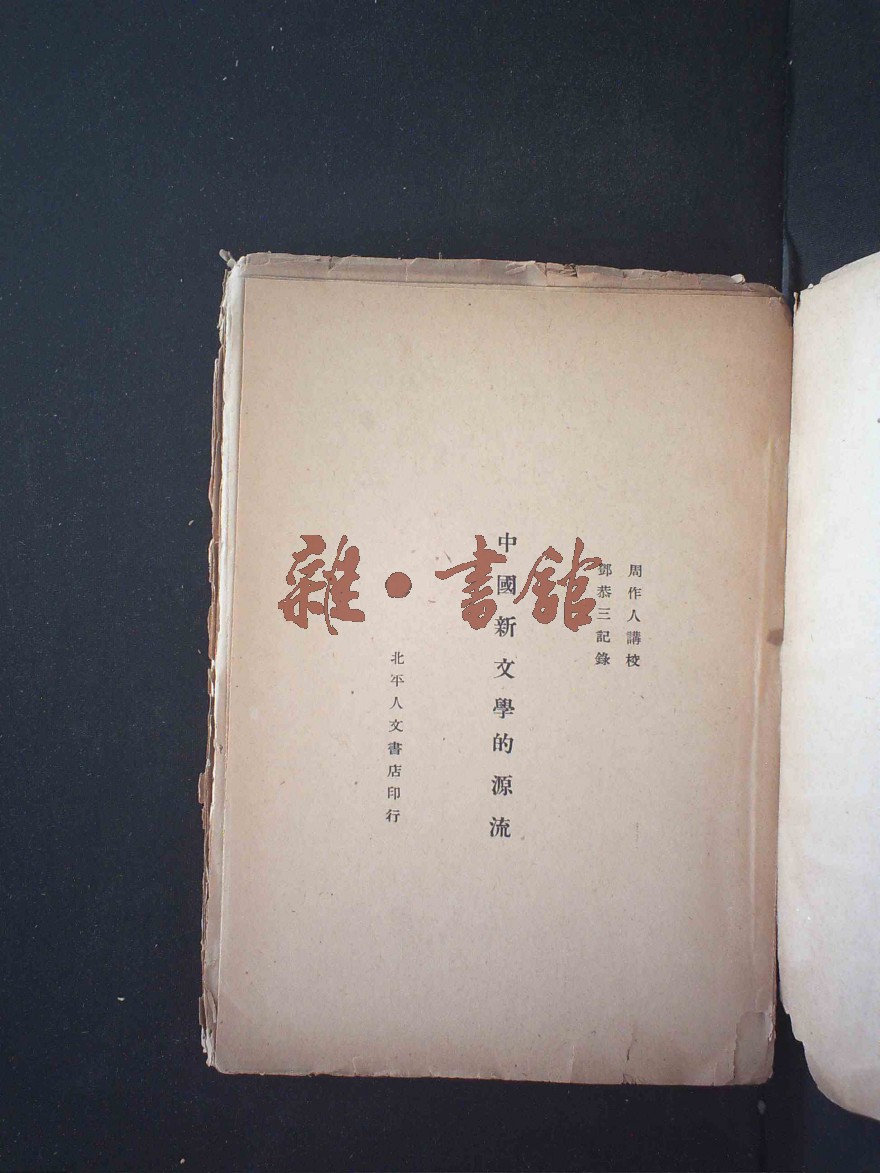 周作人講校
鄧恭三記錄
中國新文學的源流
北平人文書店印行
雜·書館